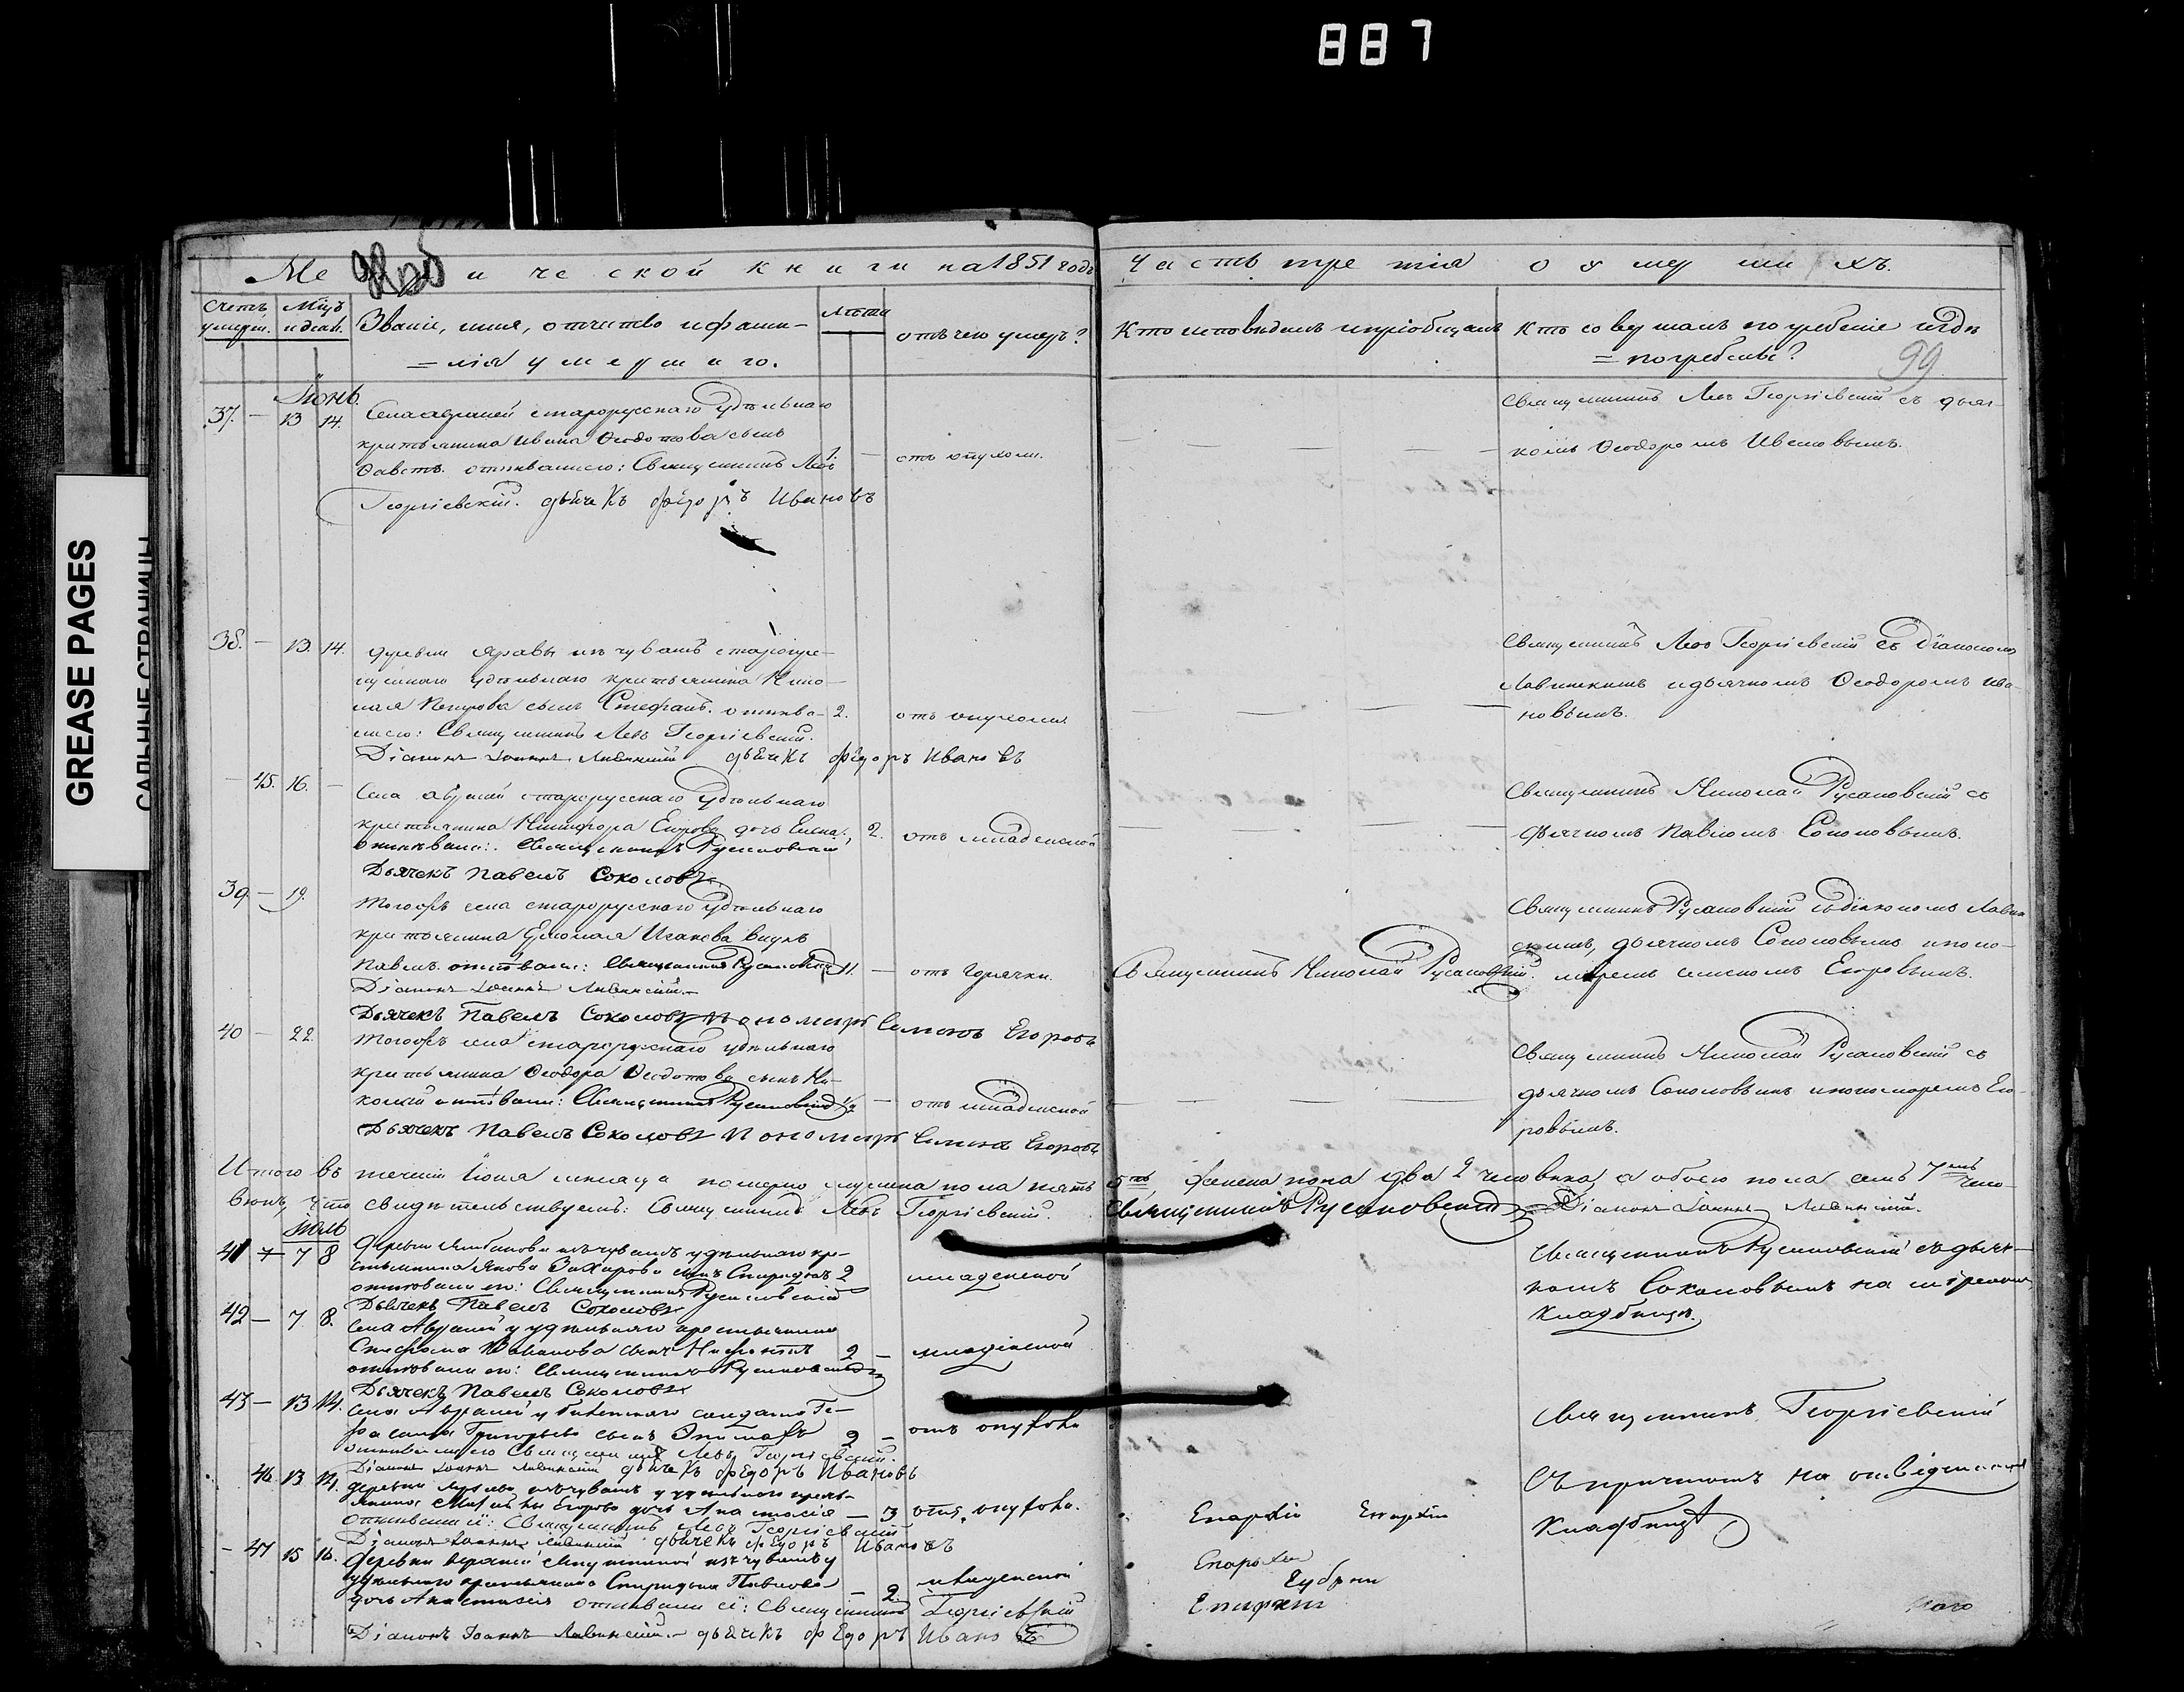 887
GREASE PAGES
САЛЬНЫЕ СТРАНИЦЫ
Ме и че ской книги на 1851 годъ
Часть третія о умерших.
Счетъ умерш.
Мцъ и дни.
Званіе, имя, отчество и фами-
=лія умершаго.
лѣта
отъ чего умеръ?
Кто исповѣдалъ и пріобщалъ
Кто совершалъ погребеніе и гдѣ
=погребены?
99
Іюнь.
37. — 13 14. Села старорусскаго удѣльнаго
крестьянина Ивана Ѳеодотова сынъ
отпѣвали его: Священникъ Левъ
Георгіевскій. дьячекъ Ѳедоръ Ивановъ
1 — отъ опухоли.
Священникъ Левъ Георгіевскій съ дьяч-
комъ Ѳеодоромъ Ивановымъ.
38. — 13. 14. деревни изъ чувашъ
удѣльнаго крестьянина Нико-
лая Петрова сынъ Стефанъ. отпѣва-
ли его: Священникъ Левъ Георгіевскій.
Діаконъ Іоаннъ Лавинскій дьячекъ Ѳедоръ Ивановъ
2. отъ опухоли
Священникъ Левъ Георгіевскій съ Діакономъ
Лавинскимъ и дьячкомъ Ѳеодоромъ Ива-
новымъ.
— 45. 16. — Села старорусскаго удѣльнаго
крестьянина Никифора Егорова дочь Елена.
отпѣвали: Священникъ Русановскій
Дьячекъ Павелъ Соколовъ.
2. отъ младенской
Священникъ Николай Русановскій съ
дьячкомъ Павломъ Соколовымъ.
39. — 19. Тогожъ села старорусскаго удѣльнаго
крестьянина Исакова внукъ
Павелъ. отпѣвали: Священникъ Русановскій
Діаконъ Іоаннъ Лавинскій.
Дьячекъ Павелъ Соколовъ Пономарь Семенъ Егоровъ
11. — отъ горячки.
Священникъ Николай Русановскій.
Священникъ Русановскій съ діакономъ Лавин
скимъ, дьячкомъ Соколовымъ и поно-
маремъ Семеномъ Егоровымъ.
40 — 22. Тогожъ села старорусскаго удѣльнаго
крестьянина Ѳеодора Ѳеодотова сынъ Ни-
колай отпѣвали: Священникъ Русановскій
Дьячекъ Павелъ Соколовъ Пономарь Семенъ Егоровъ
1/2 — отъ младенской
Священникъ Николай Русановскій съ
дьячкомъ Соколовымъ и пономаремъ Его-
ровымъ.
Итого въ теченіи Іюня мѣсяца померло мужеска пола пять 5ть женска пола два 2 человѣка, а обоего пола семь 7мь чело-
вѣкъ, что свидѣтельствуемъ: Священникъ Левъ Георгіевскій. Священникъ Русановскій Діаконъ Іоаннъ Лавинскій.
Іюль
41 7 8 Деревни изъ чувашъ удѣльнаго кре-
стьянина Якова Захарова сынъ Спиридонъ
отпѣвали его: Священникъ Русановскій
Дьячекъ Павелъ Соколовъ
2 младенской
Священникъ Русановскій съ дьяч-
комъ Соколовымъ на
кладбищѣ.
42 — 7 8. Села удѣльнаго крестьянина
Стефана сынъ
отпѣвали его: Священникъ Русановскій
Дьячекъ Павелъ Соколовъ
2 — младенской
43 — 13 14. Села солдата Ге-
расима Григорьева сынъ
отпѣвали его Священникъ Левъ Георгіевскій.
Діаконъ Іоаннъ Лавинскій дьячекъ Ѳедоръ Ивановъ
2 — отъ опухоли
Священникъ Георгіевскій
Съ причтомъ на
кладбищѣ
46. 13 14. деревни изъ чувашъ удѣльнаго кресть-
янина Егорова дочь Анастасія
отпѣвали ее: Священникъ Левъ Георгіевскій
Діаконъ Іоаннъ Лавинскій дьячекъ Ѳедоръ Ивановъ
— 3 отъ опухоли.
Епархіи
— 47 15 16. Деревни изъ чувашъ
удѣльнаго крестьянина Спиридона Павлова
дочь Анастасія отпѣвали ее: Священникъ Георгіевскій
Діаконъ Іоаннъ Лавинскій. — дьячекъ Ѳедоръ Ивановъ
— 2 младенской